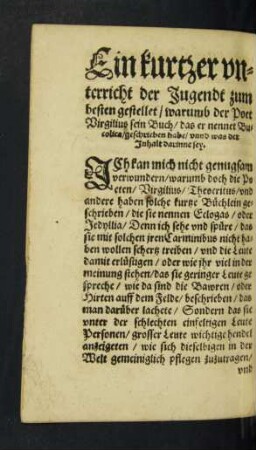 Ein kurtzer vn-
terricht der Jugendt zum
besten gestellet / warumb der Poet
Virgilius sein Buch / das er nennet Bu
colica / geschrieben habe / vnnd was der
Inhalt darinne sey.
ICh kan mich nicht genugsam
verwundern / warumb doch die Po
eten / Virgilius / Theocritus / vnd
andere haben solche kurtze Büchlein ge
schrieben / die sie nennen Eclogas / oder
Jedyllia / Denn ich sehe vnd spüre / das
sie mit solchen jren Carminibus nicht ha
ben wollen schertz treiben / vnd die Leute
damit erlüstigen / oder wie jhr viel in der
meinung stehen / das sie geringer Leute ge
spreche / wie da sind die Bawren / oder
Hirten auff dem Felde / beschrieben / das
man darüber lachete / Sondern das sie
vnter der schlechten einfeltigen Leute
Personen / grosser Leute wichtige hendel
anzeigeten / wie sich dieselbigen in der
Welt gemeiniglich pflegen zuzutragen /
vnd